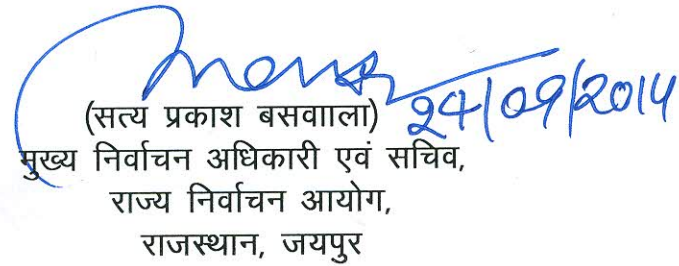 24/09/2014
(सत्य प्रकाश बसवााला)
मुख्य निर्वाचन अधिकारी एवं सचिव,
राज्य निर्वाचन आयोग,
राजस्थान, जयपुर